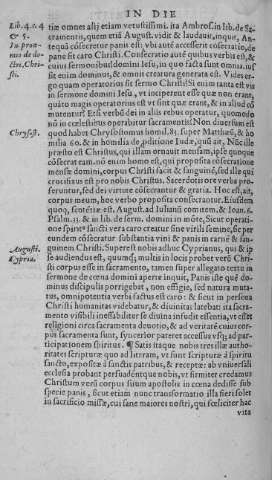 IN DIE
Lib. 4. c. 4
& 5.
In pronu-
mo de do-
ctri. Chri-
sti.
Chrysost.
Augusti.
Cypria.
tiæ omnes alij etiam vetustissimi. ita Ambros. in lib. de Sa-
cramentis, quem etiā August. vidit & laudauit, inque, An-
tequā cōsecretur panis est: vbi autē accesserit cōsecratio, de
pane fit caro Christi. Consecratio autē quibus verbis est, &
cuius sermonibus? domini Iesu, in quo facta sunt omnia. ius-
sit enim dominus, & omnis creatura generata est. Vides er-
go quam operatorius sit sermo Christi? Si enim tanta est vis
in sermone domini Iesu, vt inciperent esse quæ non erant,
quāto magis operatorius est vt sint quæ erant, & in aliud cō
mutentur? Etsi verbo dei in alijs rebus operatur,
nō in cœlestibus operatur sacramētis? Non diuersum est
quod habet Chrysostomus homil. 83. super Matthæū, & ho
milia 60. & in homilia de proditione Iudæ, quā ait, Nūc ille
præsto est Christus, qui illam ornauit mensam, ipse quoque
cōsecrat eam. nō enim homo est, qui proposita de consecratione
mensæ domini, corpus Christi facit & sanguinē, sed ille qui
crucifixus est pro nobis Christus. Sacerdotis ore verba pro-
feruntur, sed dei virtute cōsecrantur & gratia. Hoc est, ait,
corpus meum, hoc verbo proposita consecrantur. Eiusdem
quoq; sentētiæ est August. ad Iulianū comitem, & Ioan. 6.
Psalm. 33. & in lib. de serm. domini in mōte, Sicut operati-
one spiritꝰ sancti vera caro creatur sine virili semine, sic per
eundem cōsecratur substantia vini & panis in carnē & san-
guinem Christi. Superest nobis adhuc Cyprianus, qui & ip-
se audiendus est, quumq; multis in locis probet verū Chri-
sti corpus esse in sacramento, tamen super allegato certe in
sermone de cœna domini aperte inquit, Panis iste quē do-
minus discipulis porrigebat, non effigie, sed natura muta-
tus, omnipotentia verbi factus est caro: & sicut in persona
Christi humanitas videbatur, & diuinitas latebat: ita sacra-
mento visibili ineffabiliter se diuina infudit essentia, vt esset
religioni circa sacramenta deuotio, & ad veritatē cuius cor-
pus sacramenta sunt, syncerior pateret accessus vsq; ad par-
ticipationem spiritus. ¶ Satis itaque nobis tres illæ autho-
ritates scripturæ quo ad literam, vt sunt scripturæ à spiritu
sancto, expositæ à sanctis patribus, & receptæ ab vniuersali
ecclesia probant persuadentque nobis, vt firmiter credamus
Christum verū corpus suum apostolis in cœna dedisse sub
specie panis, sicut etiam nunc transformatio illa fieri solet
in sacrificio missæ, cui sane maiores nostri, qui scelicit hac
vita